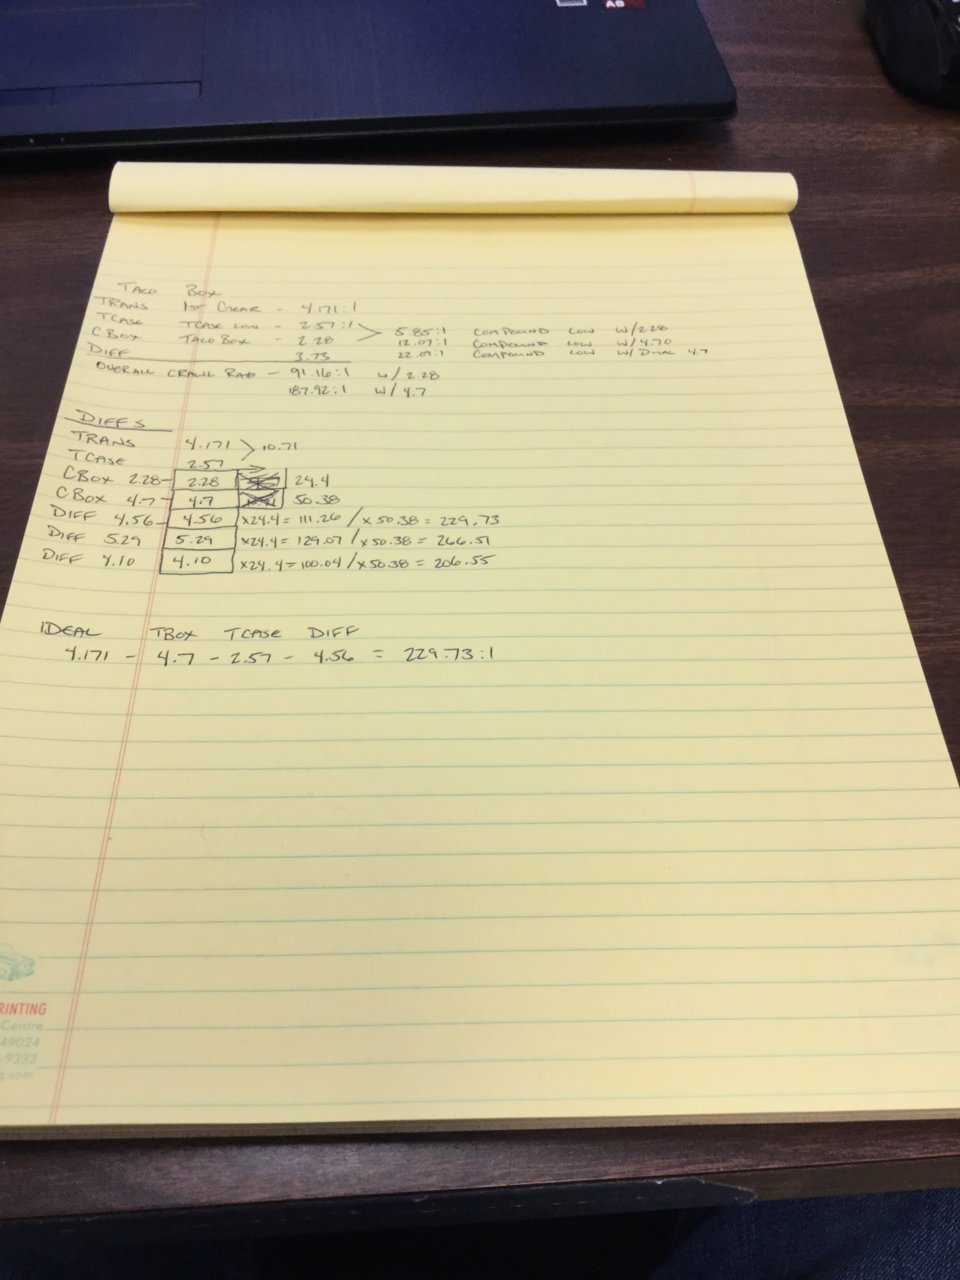 A8
TACO BOX
TRANS 1ST GEAR - 4.171:1
TCASE TCASE LOW - 2.57:1 > 5.85:1 COMPOUND LOW W/2.28
CBOX TACO BOX - 2.28 12.07:1 COMPOUND LOW W/4.70
DIFF 3.73 22.09:1 COMPOUND LOW W/DUAL 4.7
OVERALL CRAWL RATIO - 91.16:1 w/2.28
187.92:1 W/4.7
DIFFS
TRANS 4.171 > 10.71
TCASE 2.57
CBOX 2.28- 2.28 24.4
CBOX 4.7- 4.7 50.38
DIFF 4.56- 4.56 x24.4= 111.26 / x50.38 = 229.73
DIFF 5.29 5.29 x24.4= 129.07 / x50.38= 266.51
DIFF 4.10 4.10 x24.4=100.04 / x50.38 = 206.55
IDEAL TBOX TCASE DIFF
4.171 - 4.7 - 2.57 - 4.56 = 229.73:1
RINTING
Centre
49024
9333
g.com